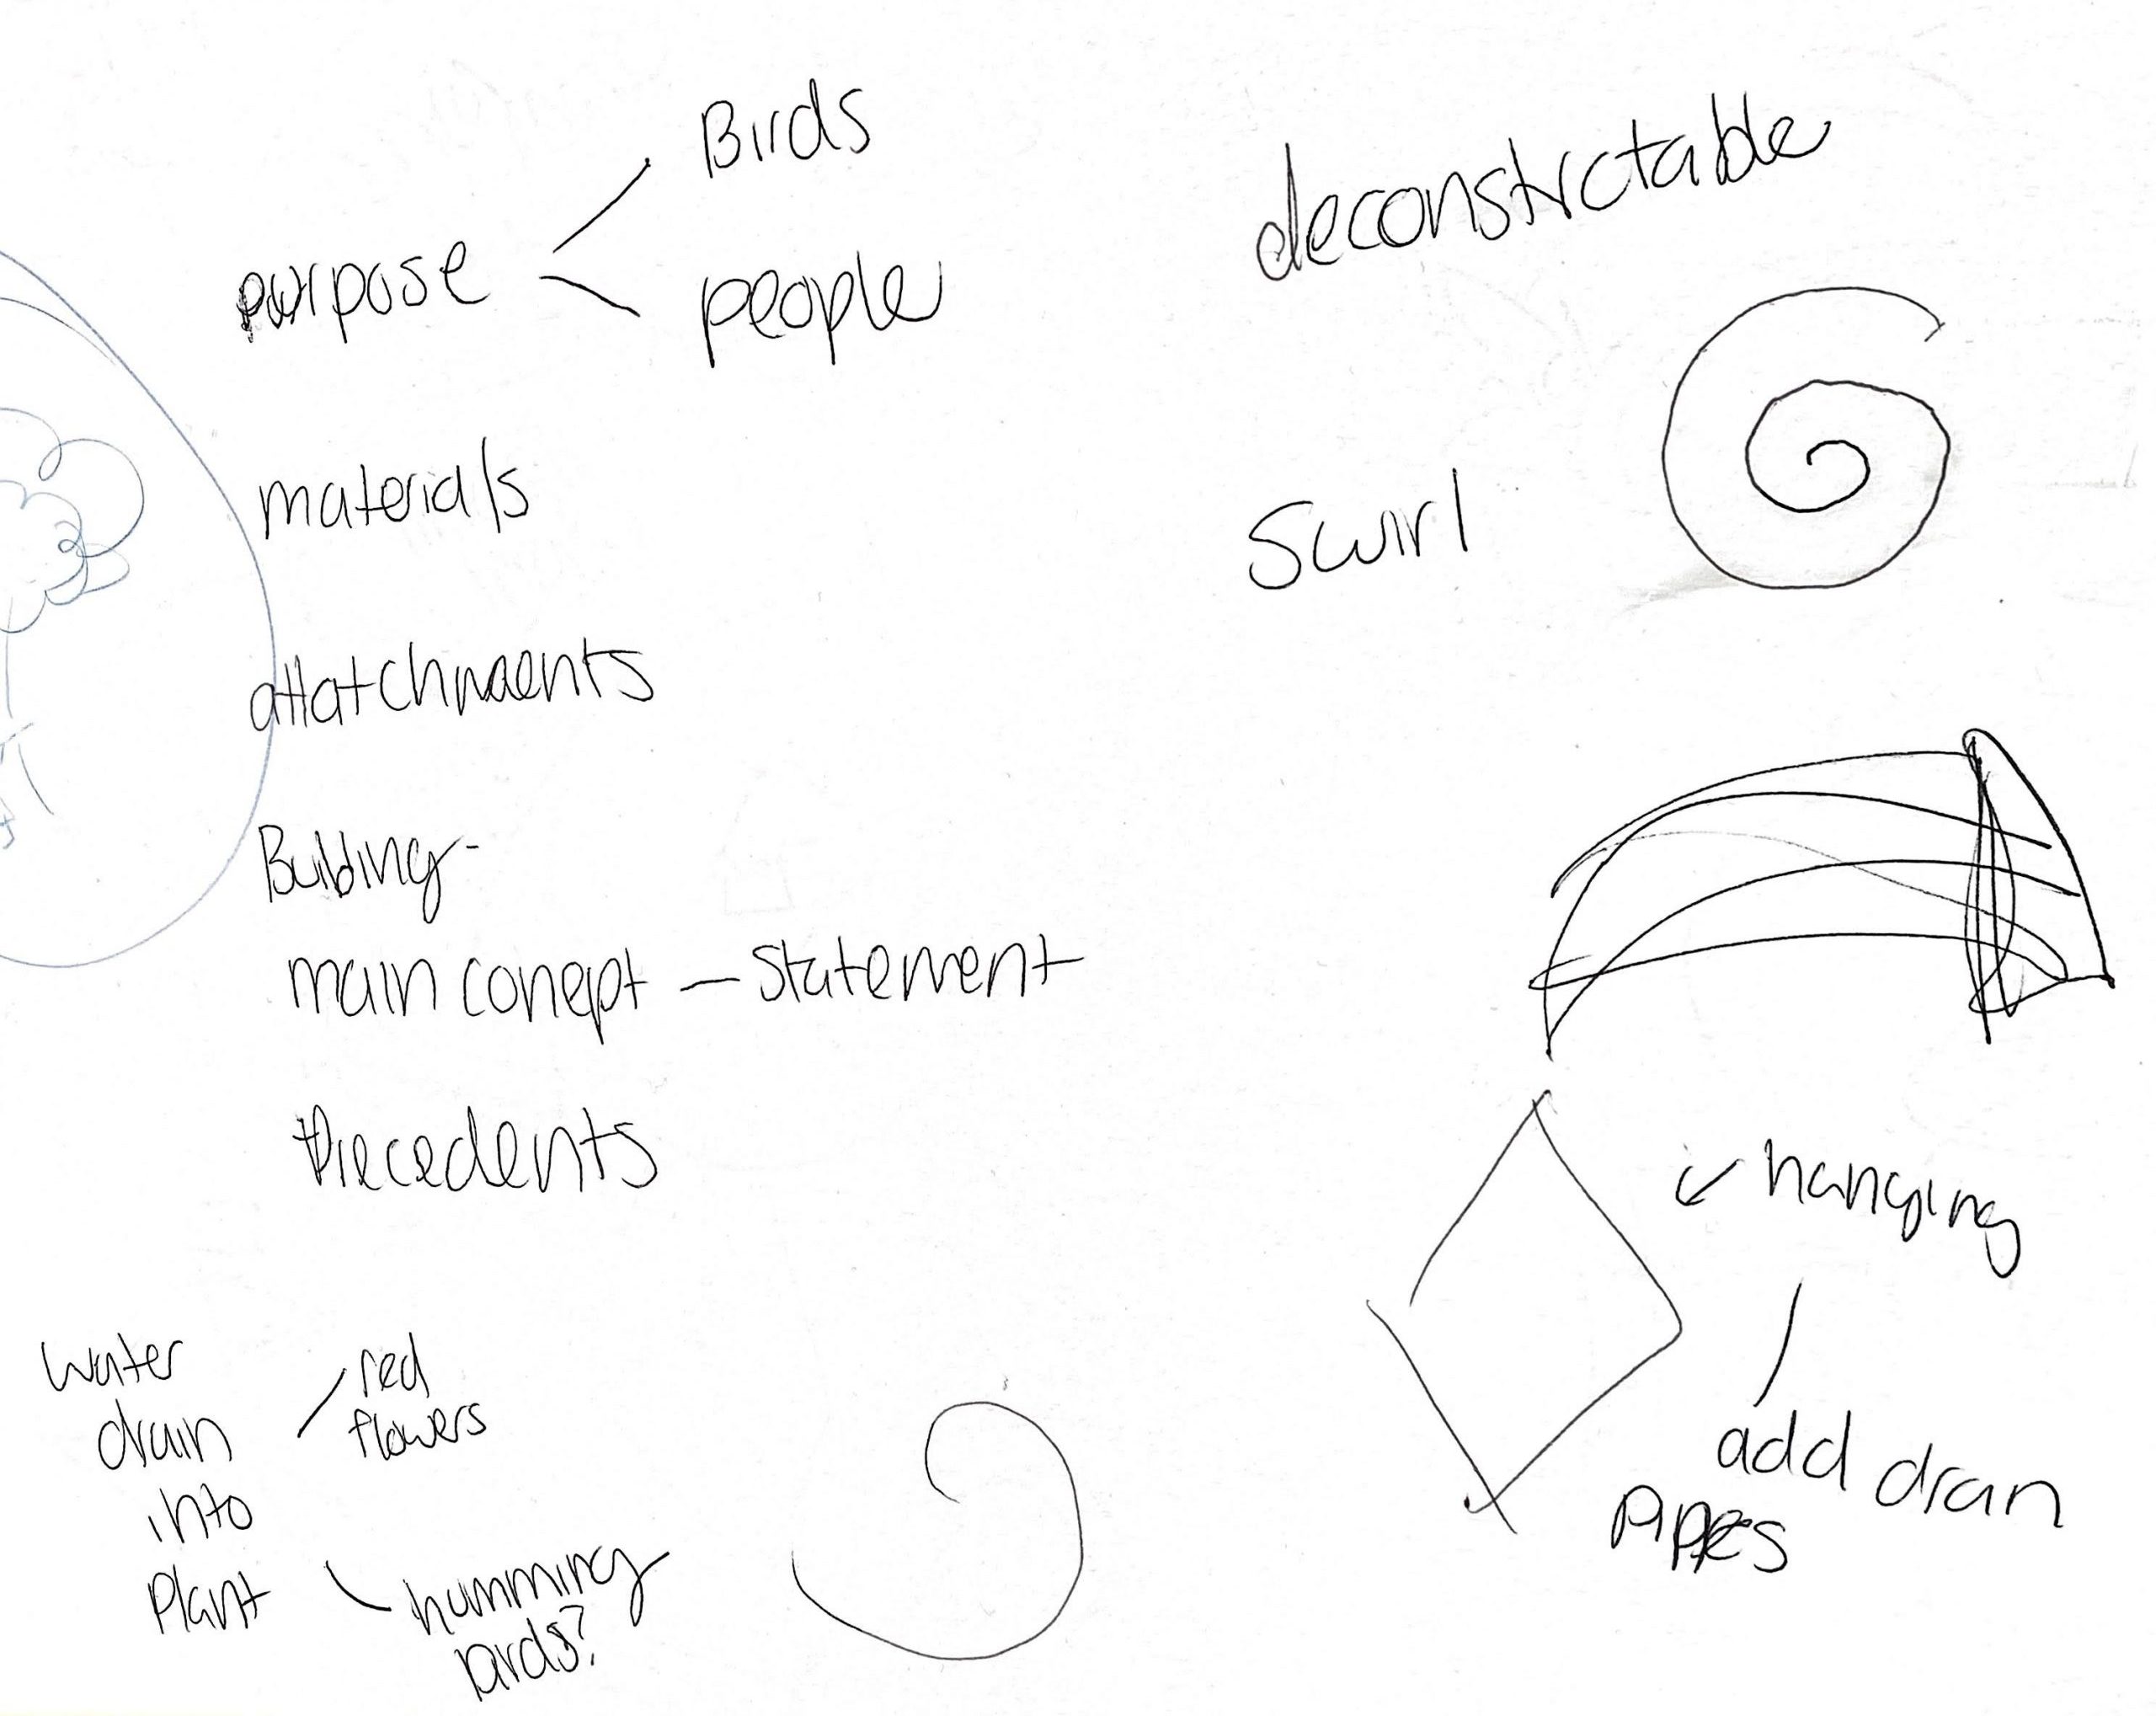 Birds
purpose
people
materials
attatchments
Building-
main conept - statement
Precedents
water
drain
into
Plant
red
flowers
humming
birds?
deconstrctable
Swirl
hanging
add dran
pipes